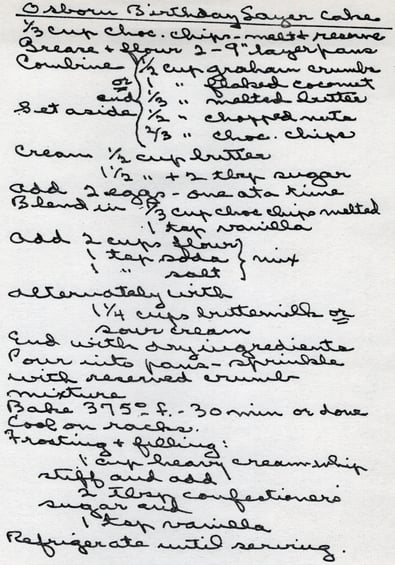 Osborn Birthday Layer Cake
1/3 cup choc. chips - melt & reserve
Grease & flour 2 - 9" layer pans
Combine { 1/2 cup graham crumbs
or 1 " flaked coconut
and 1/3 " melted butter
Set aside 1/2 " chopped nuts
2/3 " choc. chips
Cream 1/2 cup butter
1 1/2 " + 2 tbsp sugar
Add 2 eggs - one at a time
Blend in 1/3 cup choc chips melted
1 tsp vanilla
Add 2 cups flour }
1 tsp soda } mix
1 " salt }
alternately with
1 1/4 cups buttermilk or
sour cream
End with dry ingredients
Pour into pans - sprinkle
with reserved crumb
mixture
Bake 375º f. - 30 min or done
Cool on racks.
Frosting & filling:
1 cup heavy cream - whip
stiff and add
2 Tbsp confectioners
sugar and
1 tsp vanilla
Refrigerate until serving.